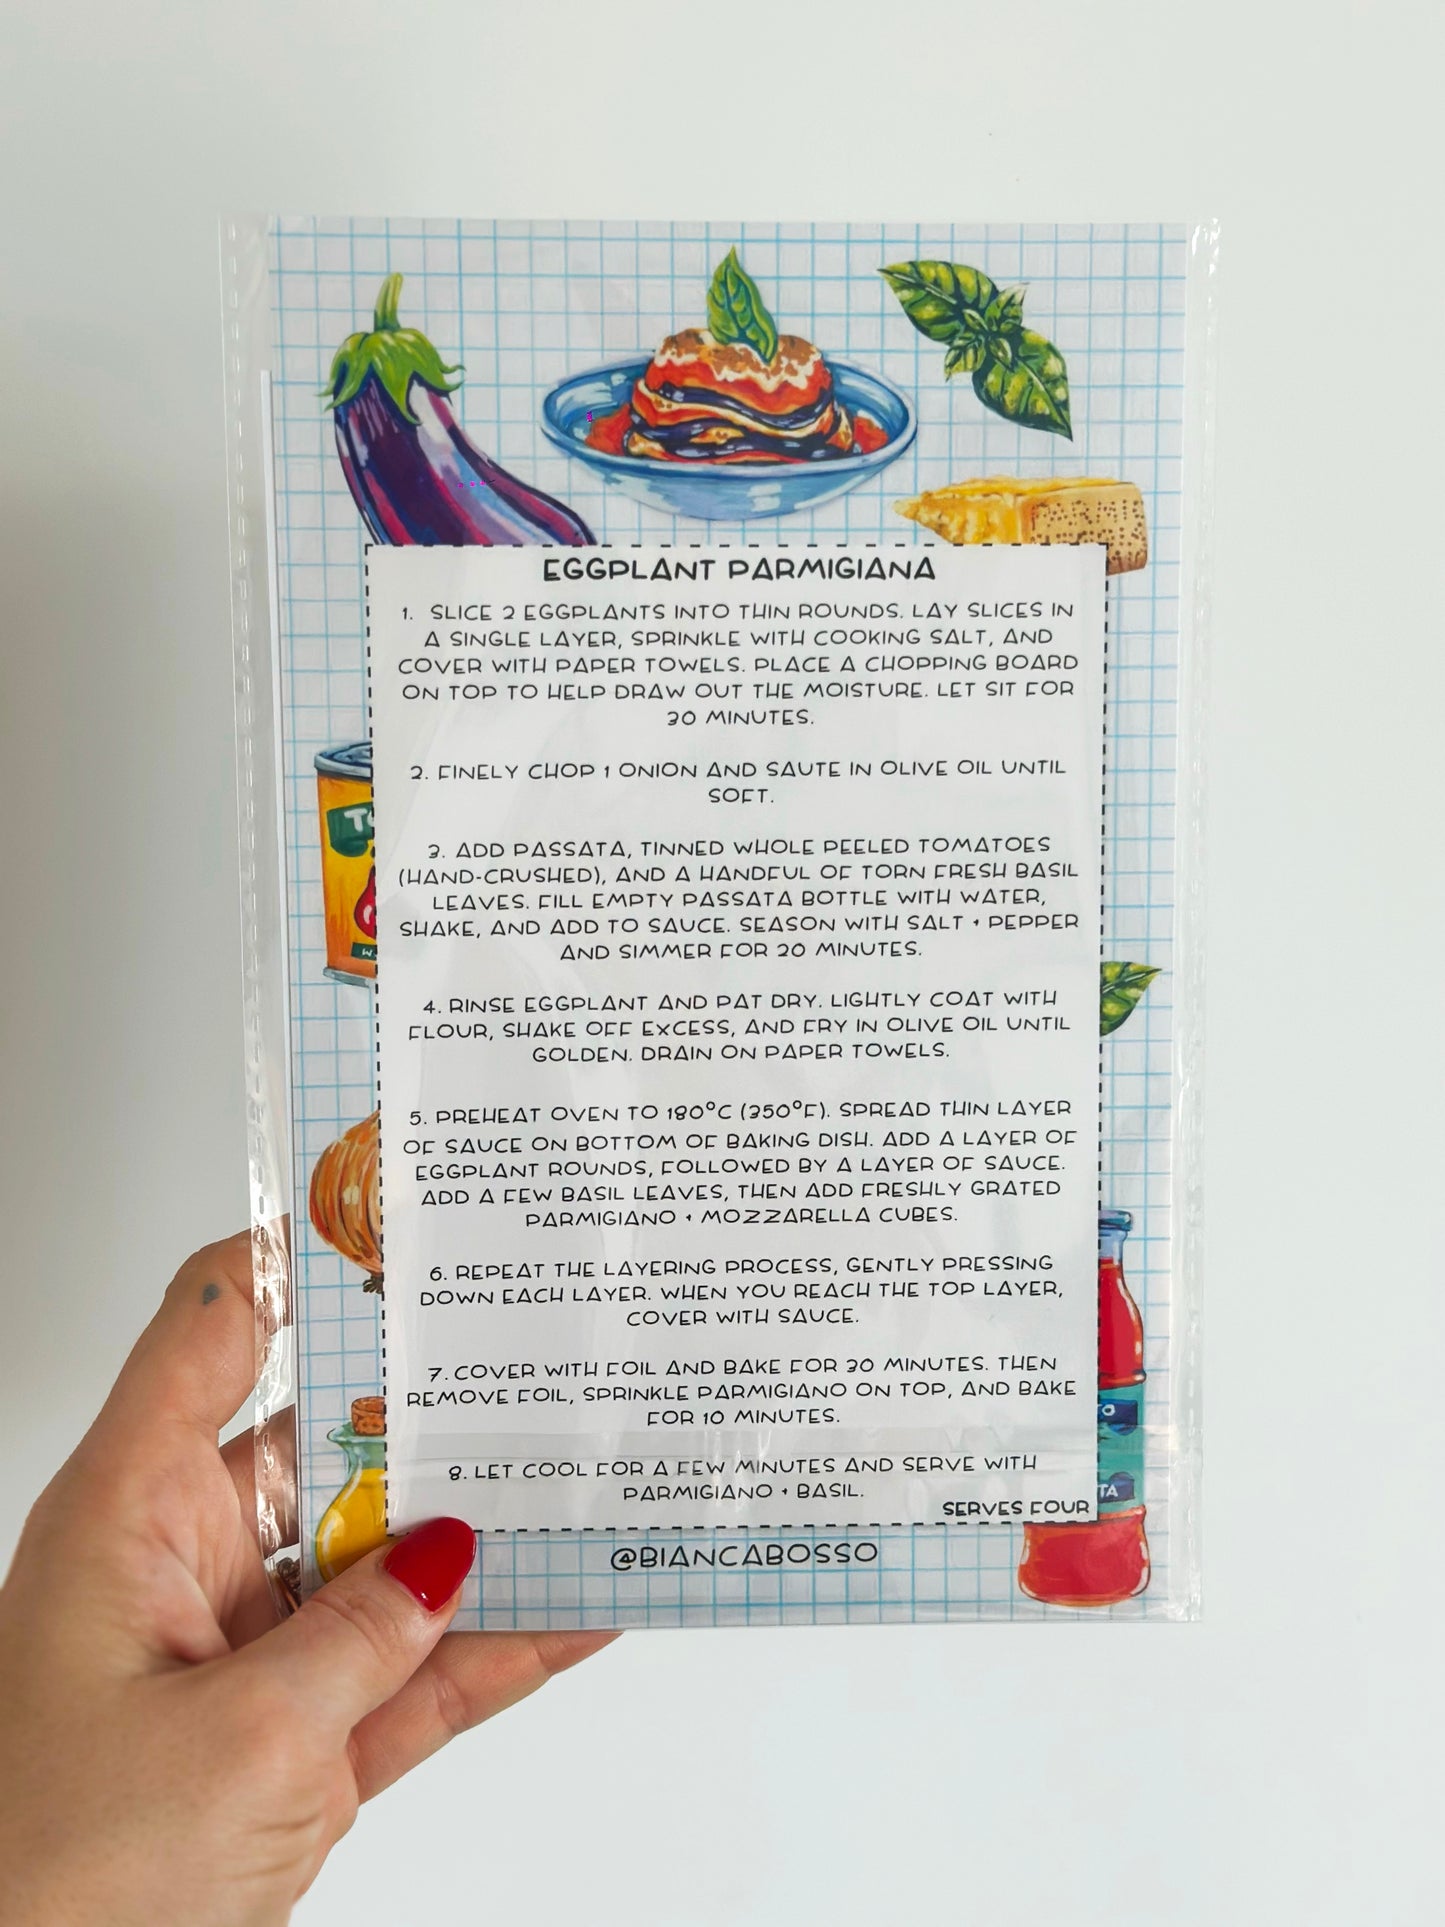 PARMIG
EGGPLANT PARMIGIANA
1. SLICE 2 EGGPLANTS INTO THIN ROUNDS. LAY SLICES IN
A SINGLE LAYER, SPRINKLE WITH COOKING SALT, AND
COVER WITH PAPER TOWELS. PLACE A CHOPPING BOARD
ON TOP TO HELP DRAW OUT THE MOISTURE. LET SIT FOR
30 MINUTES.
2. FINELY CHOP 1 ONION AND SAUTE IN OLIVE OIL UNTIL
SOFT.
3. ADD PASSATA, TINNED WHOLE PEELED TOMATOES
(HAND-CRUSHED), AND A HANDFUL OF TORN FRESH BASIL
LEAVES. FILL EMPTY PASSATA BOTTLE WITH WATER,
SHAKE, AND ADD TO SAUCE. SEASON WITH SALT + PEPPER
AND SIMMER FOR 20 MINUTES.
4. RINSE EGGPLANT AND PAT DRY. LIGHTLY COAT WITH
FLOUR, SHAKE OFF EXCESS, AND FRY IN OLIVE OIL UNTIL
GOLDEN. DRAIN ON PAPER TOWELS.
5. PREHEAT OVEN TO 180°C (350°F). SPREAD THIN LAYER
OF SAUCE ON BOTTOM OF BAKING DISH. ADD A LAYER OF
EGGPLANT ROUNDS, FOLLOWED BY A LAYER OF SAUCE.
ADD A FEW BASIL LEAVES, THEN ADD FRESHLY GRATED
PARMIGIANO + MOZZARELLA CUBES.
6. REPEAT THE LAYERING PROCESS, GENTLY PRESSING
DOWN EACH LAYER. WHEN YOU REACH THE TOP LAYER,
COVER WITH SAUCE.
7. COVER WITH FOIL AND BAKE FOR 30 MINUTES. THEN
REMOVE FOIL, SPRINKLE PARMIGIANO ON TOP, AND BAKE
FOR 10 MINUTES.
8. LET COOL FOR A FEW MINUTES AND SERVE WITH
PARMIGIANO + BASIL.
TA
SERVES FOUR
@BIANCABOSSO